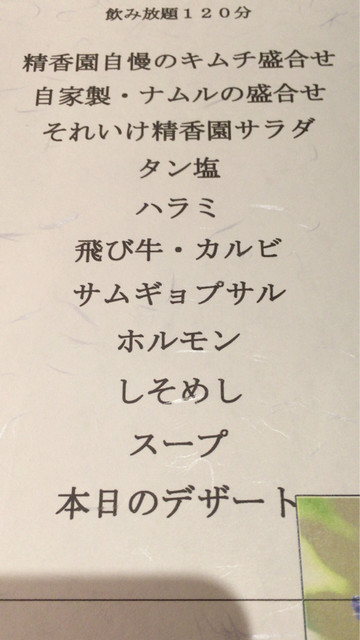 飲み放題１２０分
精香園自慢のキムチ盛合せ
自家製・ナムルの盛合せ
それいけ精香園サラダ
タン塩
ハラミ
飛び牛・カルビ
サムギョプサル
ホルモン
しそめし
スープ
本日のデザート